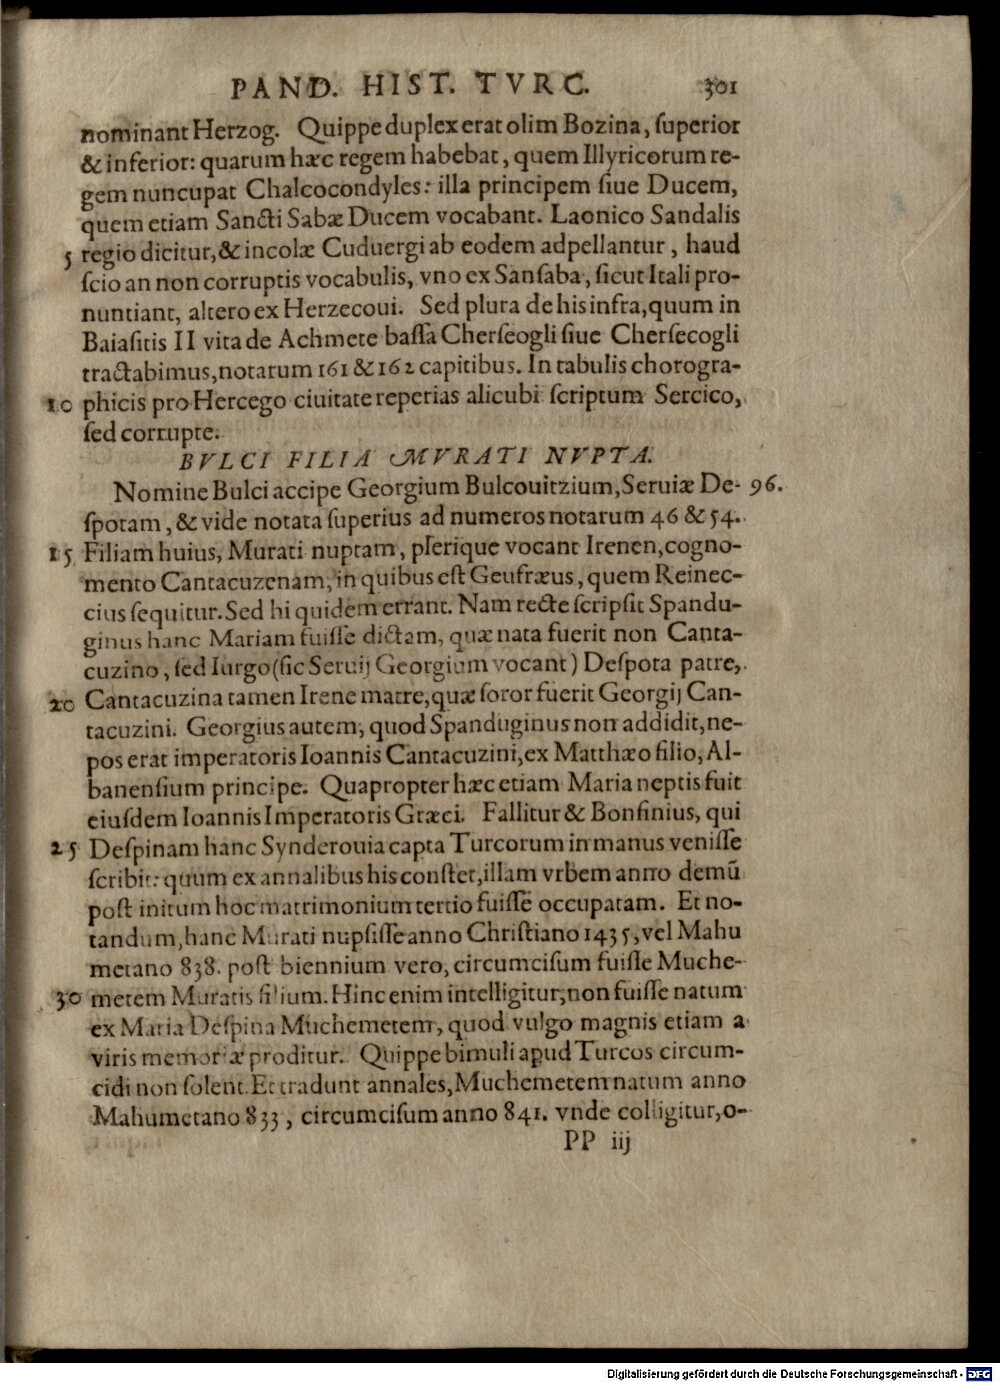 PAND. HIST. TVRC. 301
nominant Herzog. Quippe duplex erat olim Bozina, ſuperior
& inferior: quarum hæc regem habebat, quem Illyricorum re-
gem nuncupat Chalcocondyles: illa principem ſiue Ducem,
quem etiam Sancti Sabæ Ducem vocabant. Laonico Sandalis
5 regio dicitur, & incolæ Cuduergi ab eodem adpellantur, haud
ſcio an non corruptis vocabulis, vno ex Sanſaba, ſicut Itali pro-
nuntiant, altero ex Herzecoui. Sed plura de his infra, quum in
Baiaſitis II vita de Achmete baſſa Cherſeogli ſiue Cherſecogli
tractabimus, notarum 161 & 162 capitibus. In tabulis chorogra-
10 phicis pro Hercego ciuitate reperias alicubi ſcriptum Sercico,
ſed corrupte.
BVLCI FILIA MVRATI NVPTA.
Nomine Bulci accipe Georgium Bulcouitzium, Seruiæ De- 96.
ſpotam, & vide notata ſuperius ad numeros notarum 46 & 54.
15 Filiam huius, Murati nuptam, plerique vocant Irenen, cogno-
mento Cantacuzenam, in quibus eſt Geufræus, quem Reinec-
cius ſequitur. Sed hi quidem errant. Nam recte ſcripſit Spandu-
ginus hanc Mariam fuiſſe dictam, quæ nata fuerit non Canta-
cuzino, ſed Iurgo (ſic Seruij Georgium vocant) Deſpota patre,
20 Cantacuzina tamen Irene matre, quæ ſoror fuerit Georgij Can-
tacuzini. Georgius autem, quod Spanduginus non addidit, ne-
pos erat imperatoris Ioannis Cantacuzini, ex Matthæo filio, Al-
banenſium principe. Quapropter hæc etiam Maria neptis fuit
eiuſdem Ioannis Imperatoris Græci. Fallitur & Bonfinius, qui
25 Deſpinam hanc Synderouia capta Turcorum in manus veniſſe
ſcribit: quum ex annalibus his conſtet, illam vrbem anno demũ
poſt initum hoc matrimonium tertio fuiſſe occupatam. Et no-
tandum, hanc Murati nupſiſſe anno Chriſtiano 1435, vel Mahu
metano 838. poſt biennium vero, circumciſum fuiſſe Muche-
30 metem Muratis filium. Hinc enim intelligitur, non fuiſſe natum
ex Maria Deſpina Muchemetem, quod vulgo magnis etiam a
viris memoriæ proditur. Quippe bimuli apud Turcos circum-
cidi non ſolent. Et tradunt annales, Muchemetem natum anno
Mahumetano 833, circumciſum anno 841. vnde colligitur, o-
PP iij
Digitalisierung gefördert durch die Deutsche Forschungsgemeinschaft - DFG